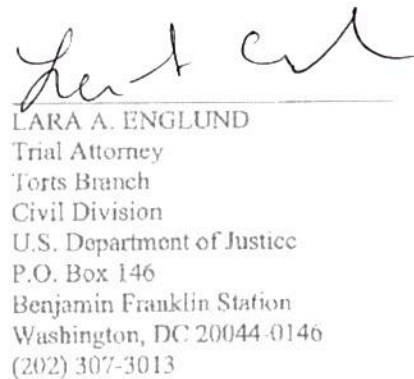 LARA A. ENGLUND
Trial Attorney
Torts Branch
Civil Division
U.S. Department of Justice
P.O. Box 146
Benjamin Franklin Station
Washington, DC 20044-0146
(202) 307-3013